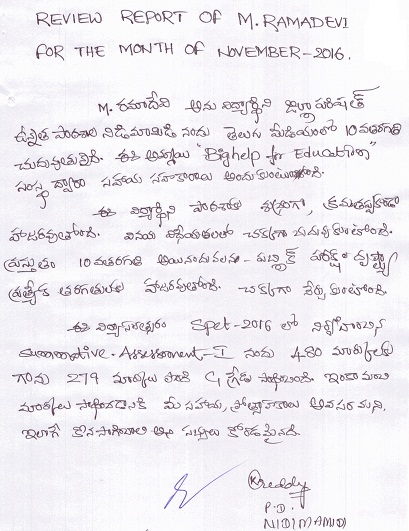 REVIEW REPORT OF M. RAMADEVI
FOR THE MONTH OF NOVEMBER-2016.
M. రమాదేవి అను విద్యార్థిని జిల్లా పరిషత్
ఉన్నత పాఠశాల నిడిమామిడి నందు తెలుగు మీడియంలో 10 వతరగతి
చదువుతున్నది. ఈ అమ్మాయి "Bighelp for Education"
సంస్థ ద్వారా సహాయ సహకారాలు అందుకుంటుంది.
ఈ విద్యార్థిని పాఠశాలకు క్రమతప్పకుండా
హాజరవుతోంది. వినయ విధేయతలతో చక్కగా చదువుకుంటోంది.
ప్రస్తుతం 10 వతరగతి అయినందువలన పబ్లిక్ పరీక్షల దృష్ట్యా
ప్రత్యేక తరగతులకు హాజరవుతోంది. చక్కగా నేర్చుకుంటోంది.
ఈ విద్యాసంవత్సరం Sept-2016 లో నిర్వహించిన
Summative-Assessment-I నందు 480 మార్కులకు
గాను 279 మార్కులు పొంది C₁ గ్రేడు సాధించింది. ఇంకా మంచి
మార్కులు సాధించడానికి మీ సహాయ, ప్రోత్సాహకాలు అవసరమని,
ఇలాగే కొనసాగించాలని కోరడమైనది.
KReddy
P.D.
NIDIMAMIDI